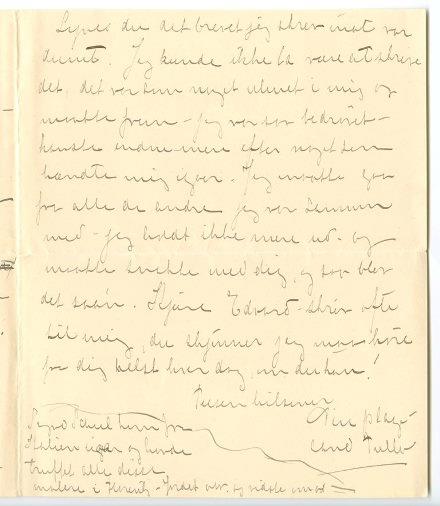 Synes du det brevet jeg skrev inat var
dumt. Jeg kunde ikke la være at skrive
det, det var som noget ulmet i mig og
maatte frem – jeg var saa bedrøvet –
kanske endnu mere efter noget som
hændte mig igaar. Jeg maatte gaa
fra alle de andre jeg var sammen
med – jeg holdt ikke mere ud – og
maatte snakke med dig, og saa blev
det saan. Kjære Edvard – skriv ofte
til mig, du skjønner jeg maa høre
fra dig helst hver dag, om du kan!
Tusen hilsener
Din
kom fra
Italien igaar og havde
truffet alle disse
malere i